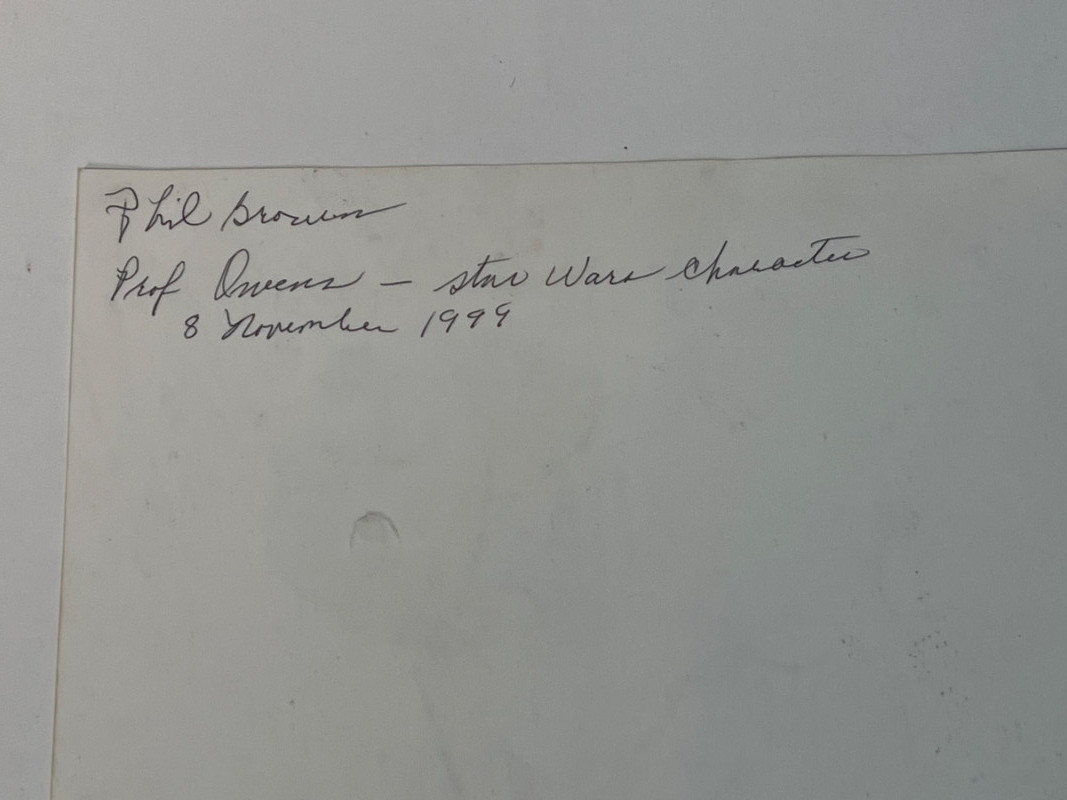 Phil Brown
Prof Owens - Star Wars Character
8 November 1999